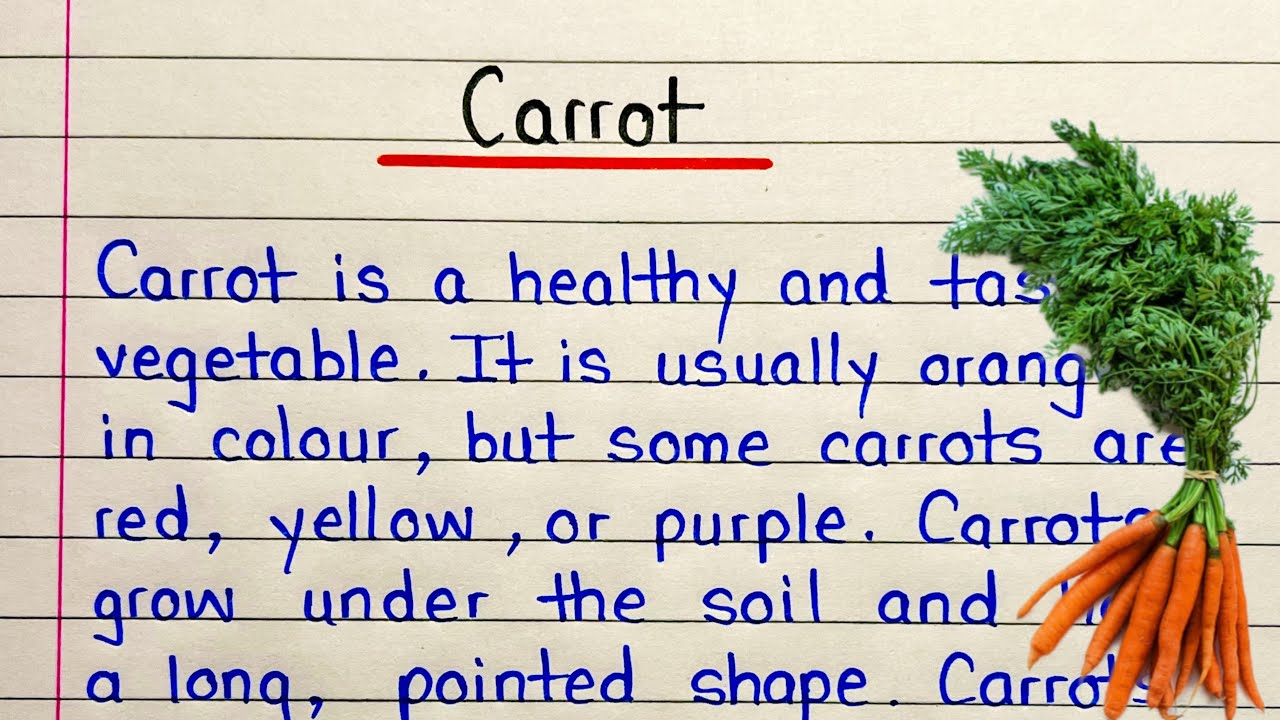 Carrot
Carrot is a healthy and
vegetable. It is usually orange
in colour, but some carrots are
red, yellow, or purple. Carrots
grow under the soil and
a long, pointed shape. Carrots